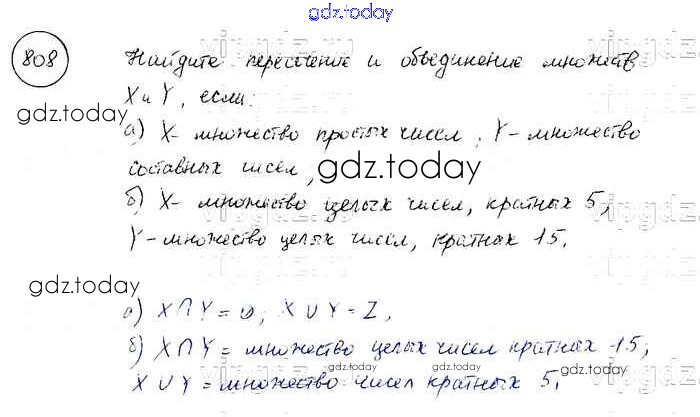 gdz.today
808 Найдите пересечение и объединение множеств
X и Y, если:
gdz.today
а) X- множество простых чисел, Y- множество
составных чисел,
gdz.today
б) X- множество целых чисел, кратных 5,
Y- множество целых чисел, кратных 15.
gdz.today
а) X∩Y = ∅, X∪Y = Z,
б) X∩Y = множество целых чисел кратных 15;
gdz.today gdz.today
X∪Y = множество чисел кратных 5.